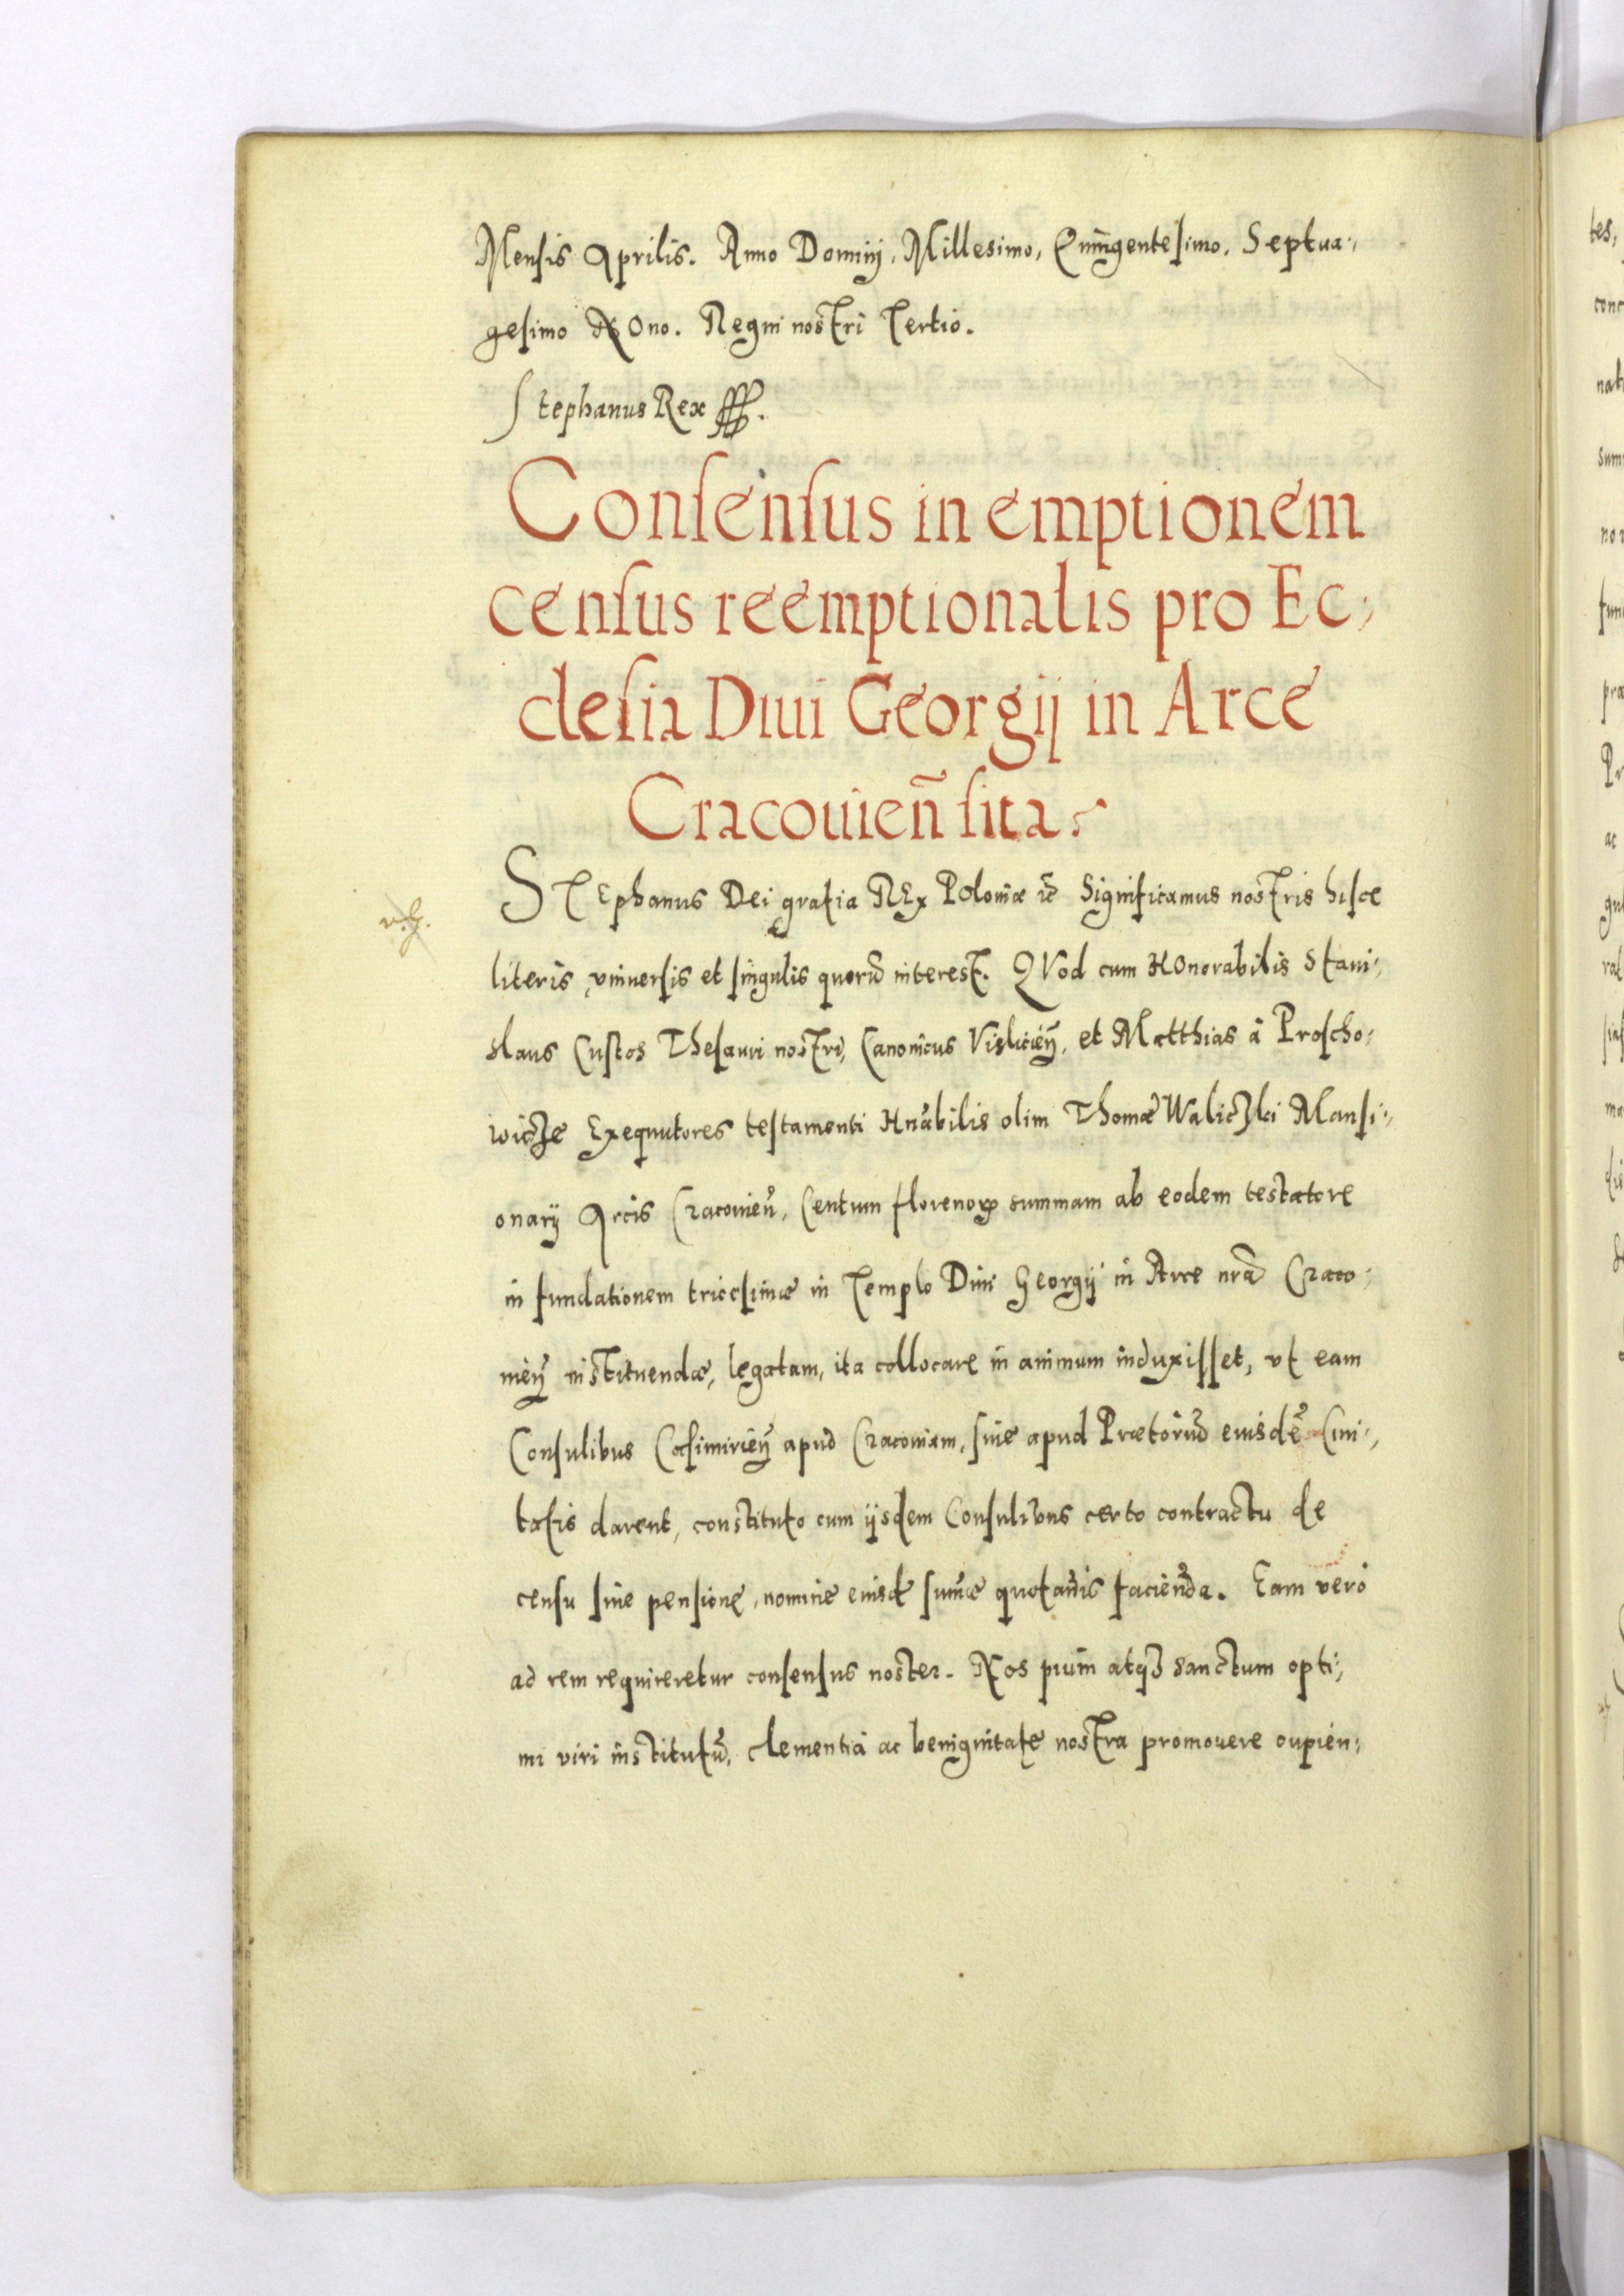 Mensis Aprilis. Anno Dominj, Millesimo, Quingentesimo, Septua:,
gesimo NOno. Regni nostri Tertio.
Stephanus Rex
Consensus in emptionem
census reemptionalis pro Ec:,
clesia Diui Georgij in Arce
Cracouieñ sita.
STEphanus Dei gratia REx POloniæ &c Significamus nostris hisce
literis vniuersis et singulis quorũ interest. QVod cum HOnorabilis Stani:,
slaus Custos Thesauri nostri, Canonicus Visliciẽn, et Matthias â Proscho:,
wicze Exequutores testamenti Hnãbilis olim Thomæ Waliczki Mansi:,
onarij Arcis Cracouieñ, Centum florenorꝝ summam ab eodem testatore
in fundationem tricesimæ in Templo Diui Georgij in Arce nrã Craco:,
uieñ instituendæ, legatam, ita collocare in animum induxisset, vt eam
Consulibus Casimirieñ apud Cracouiam, siue apud Prætoriũ eiusdẽ Ciui:,
tatis darent, constituto cum ijsdem Consulibus certo contractu de
censu siue pensione, nomine eiusdẽ sum̃æ quotañis faciẽnda. Eam verò
ad rem requireretur consensus noster. Nos pium atqꝫ sanctum opti:,
mi viri institutũ, clementia ac benignitate nostra promouere cupien:,